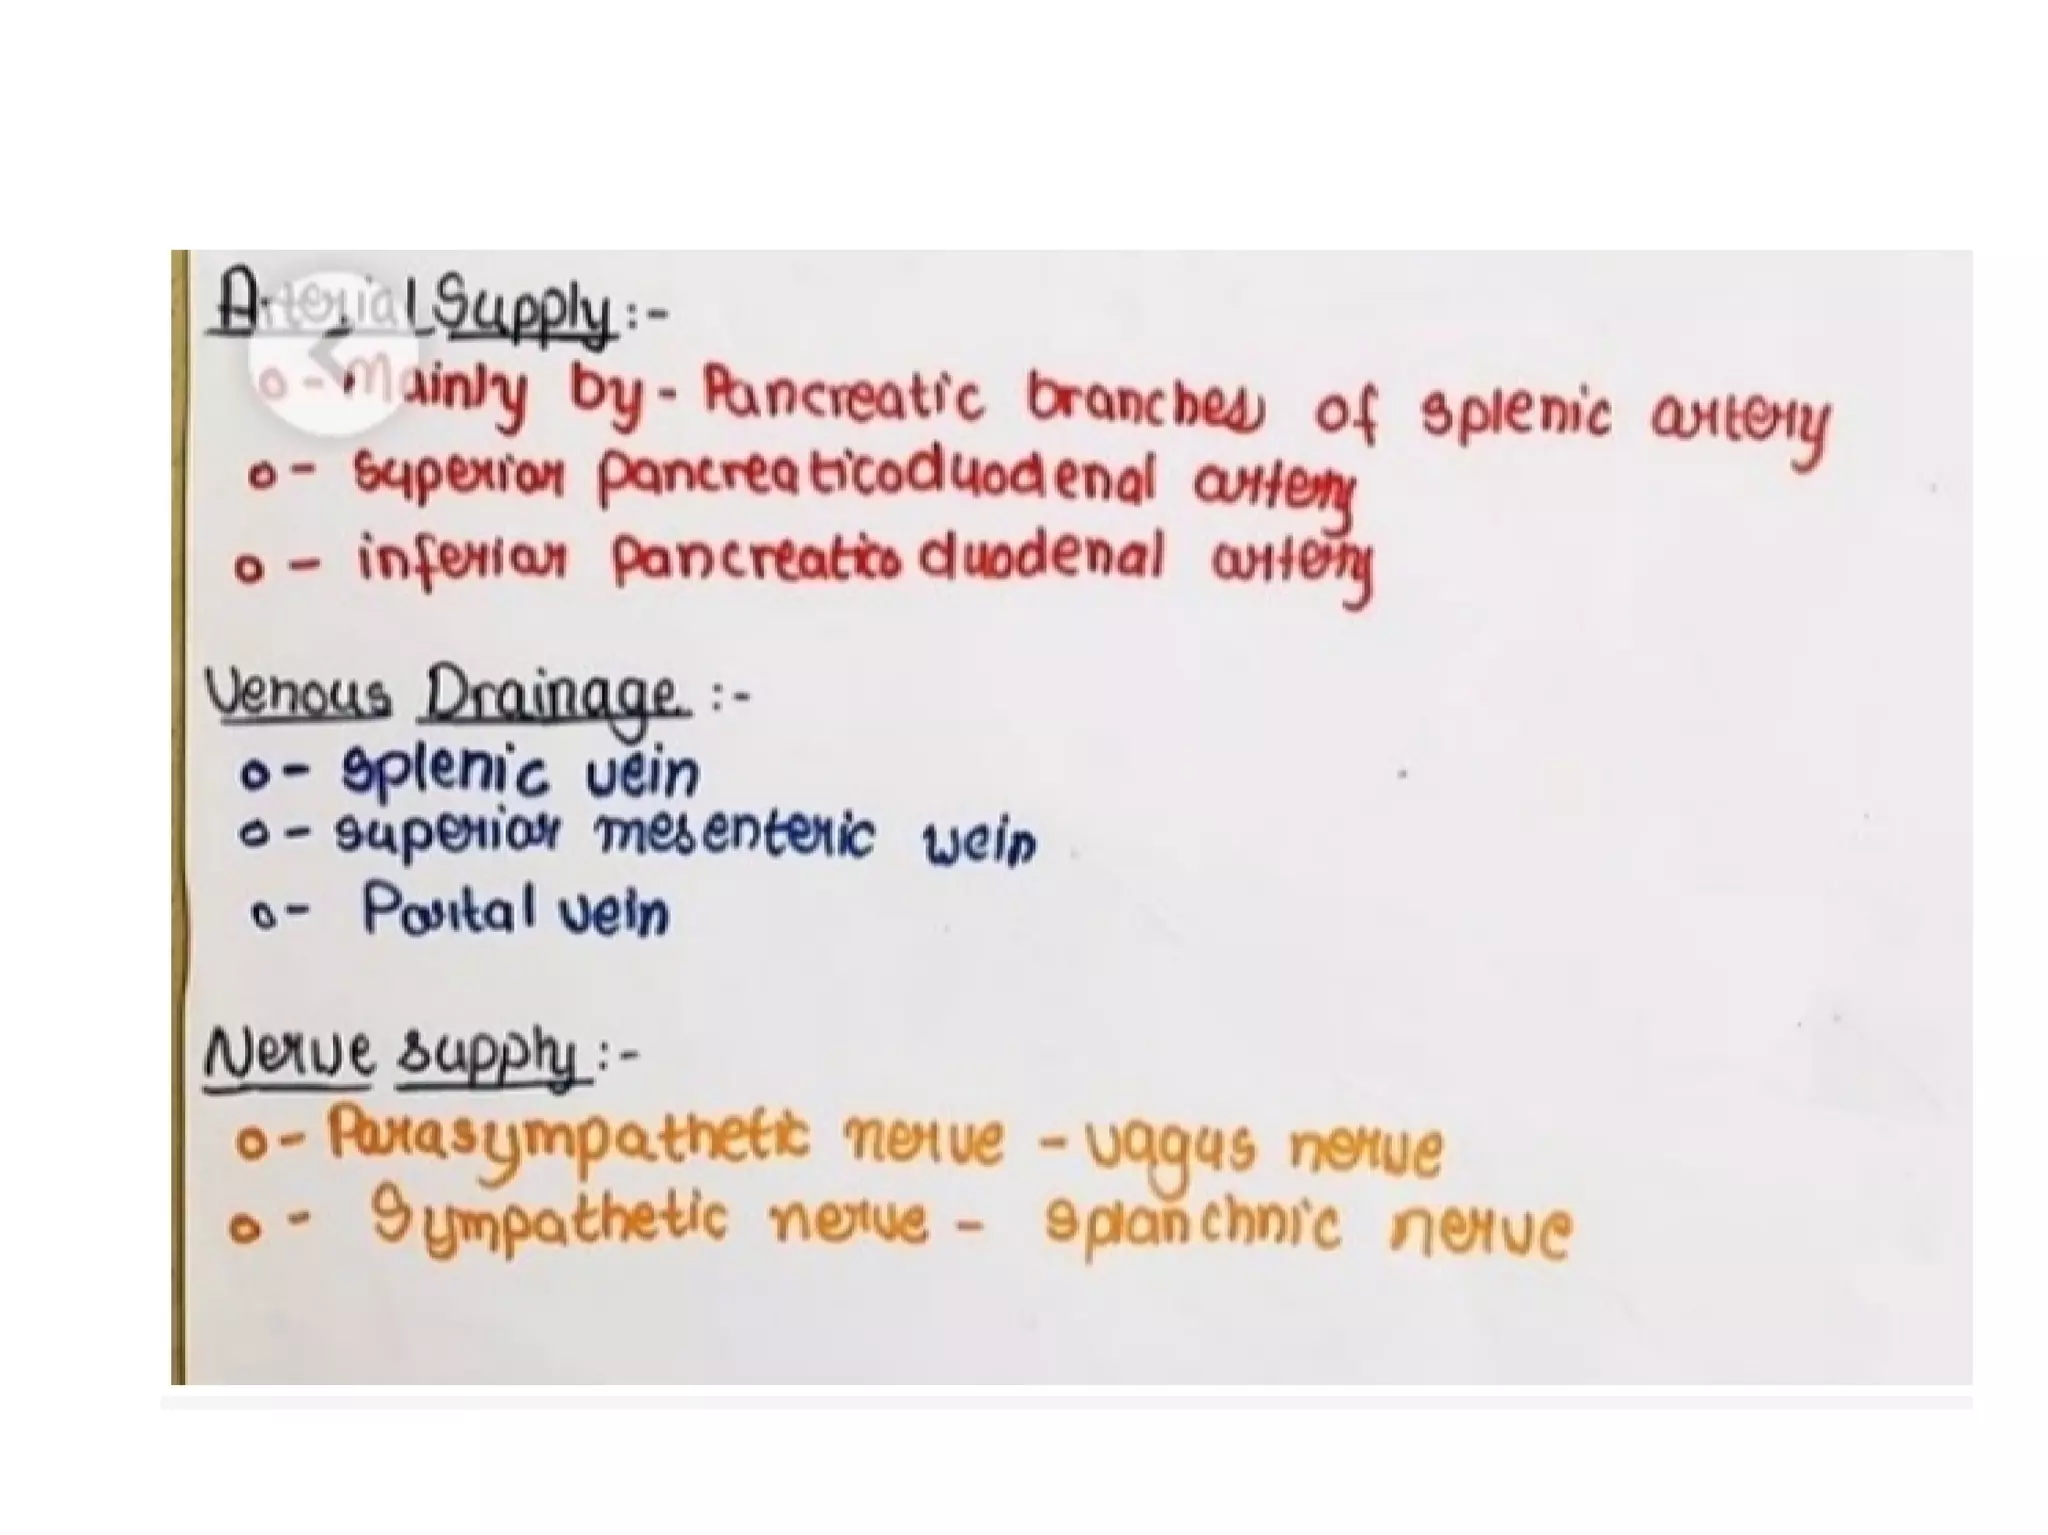 Arterial Supply :-
o - Mainly by - Pancreatic branches of splenic artery
o - superior pancreaticoduodenal artery
o - inferior pancreatico duodenal artery
Venous Drainage :-
o - splenic vein
o - superior mesenteric vein
o - Portal vein
Nerve supply :-
o - Parasympathetic nerve - vagus nerve
o - Sympathetic nerve - splanchnic nerve